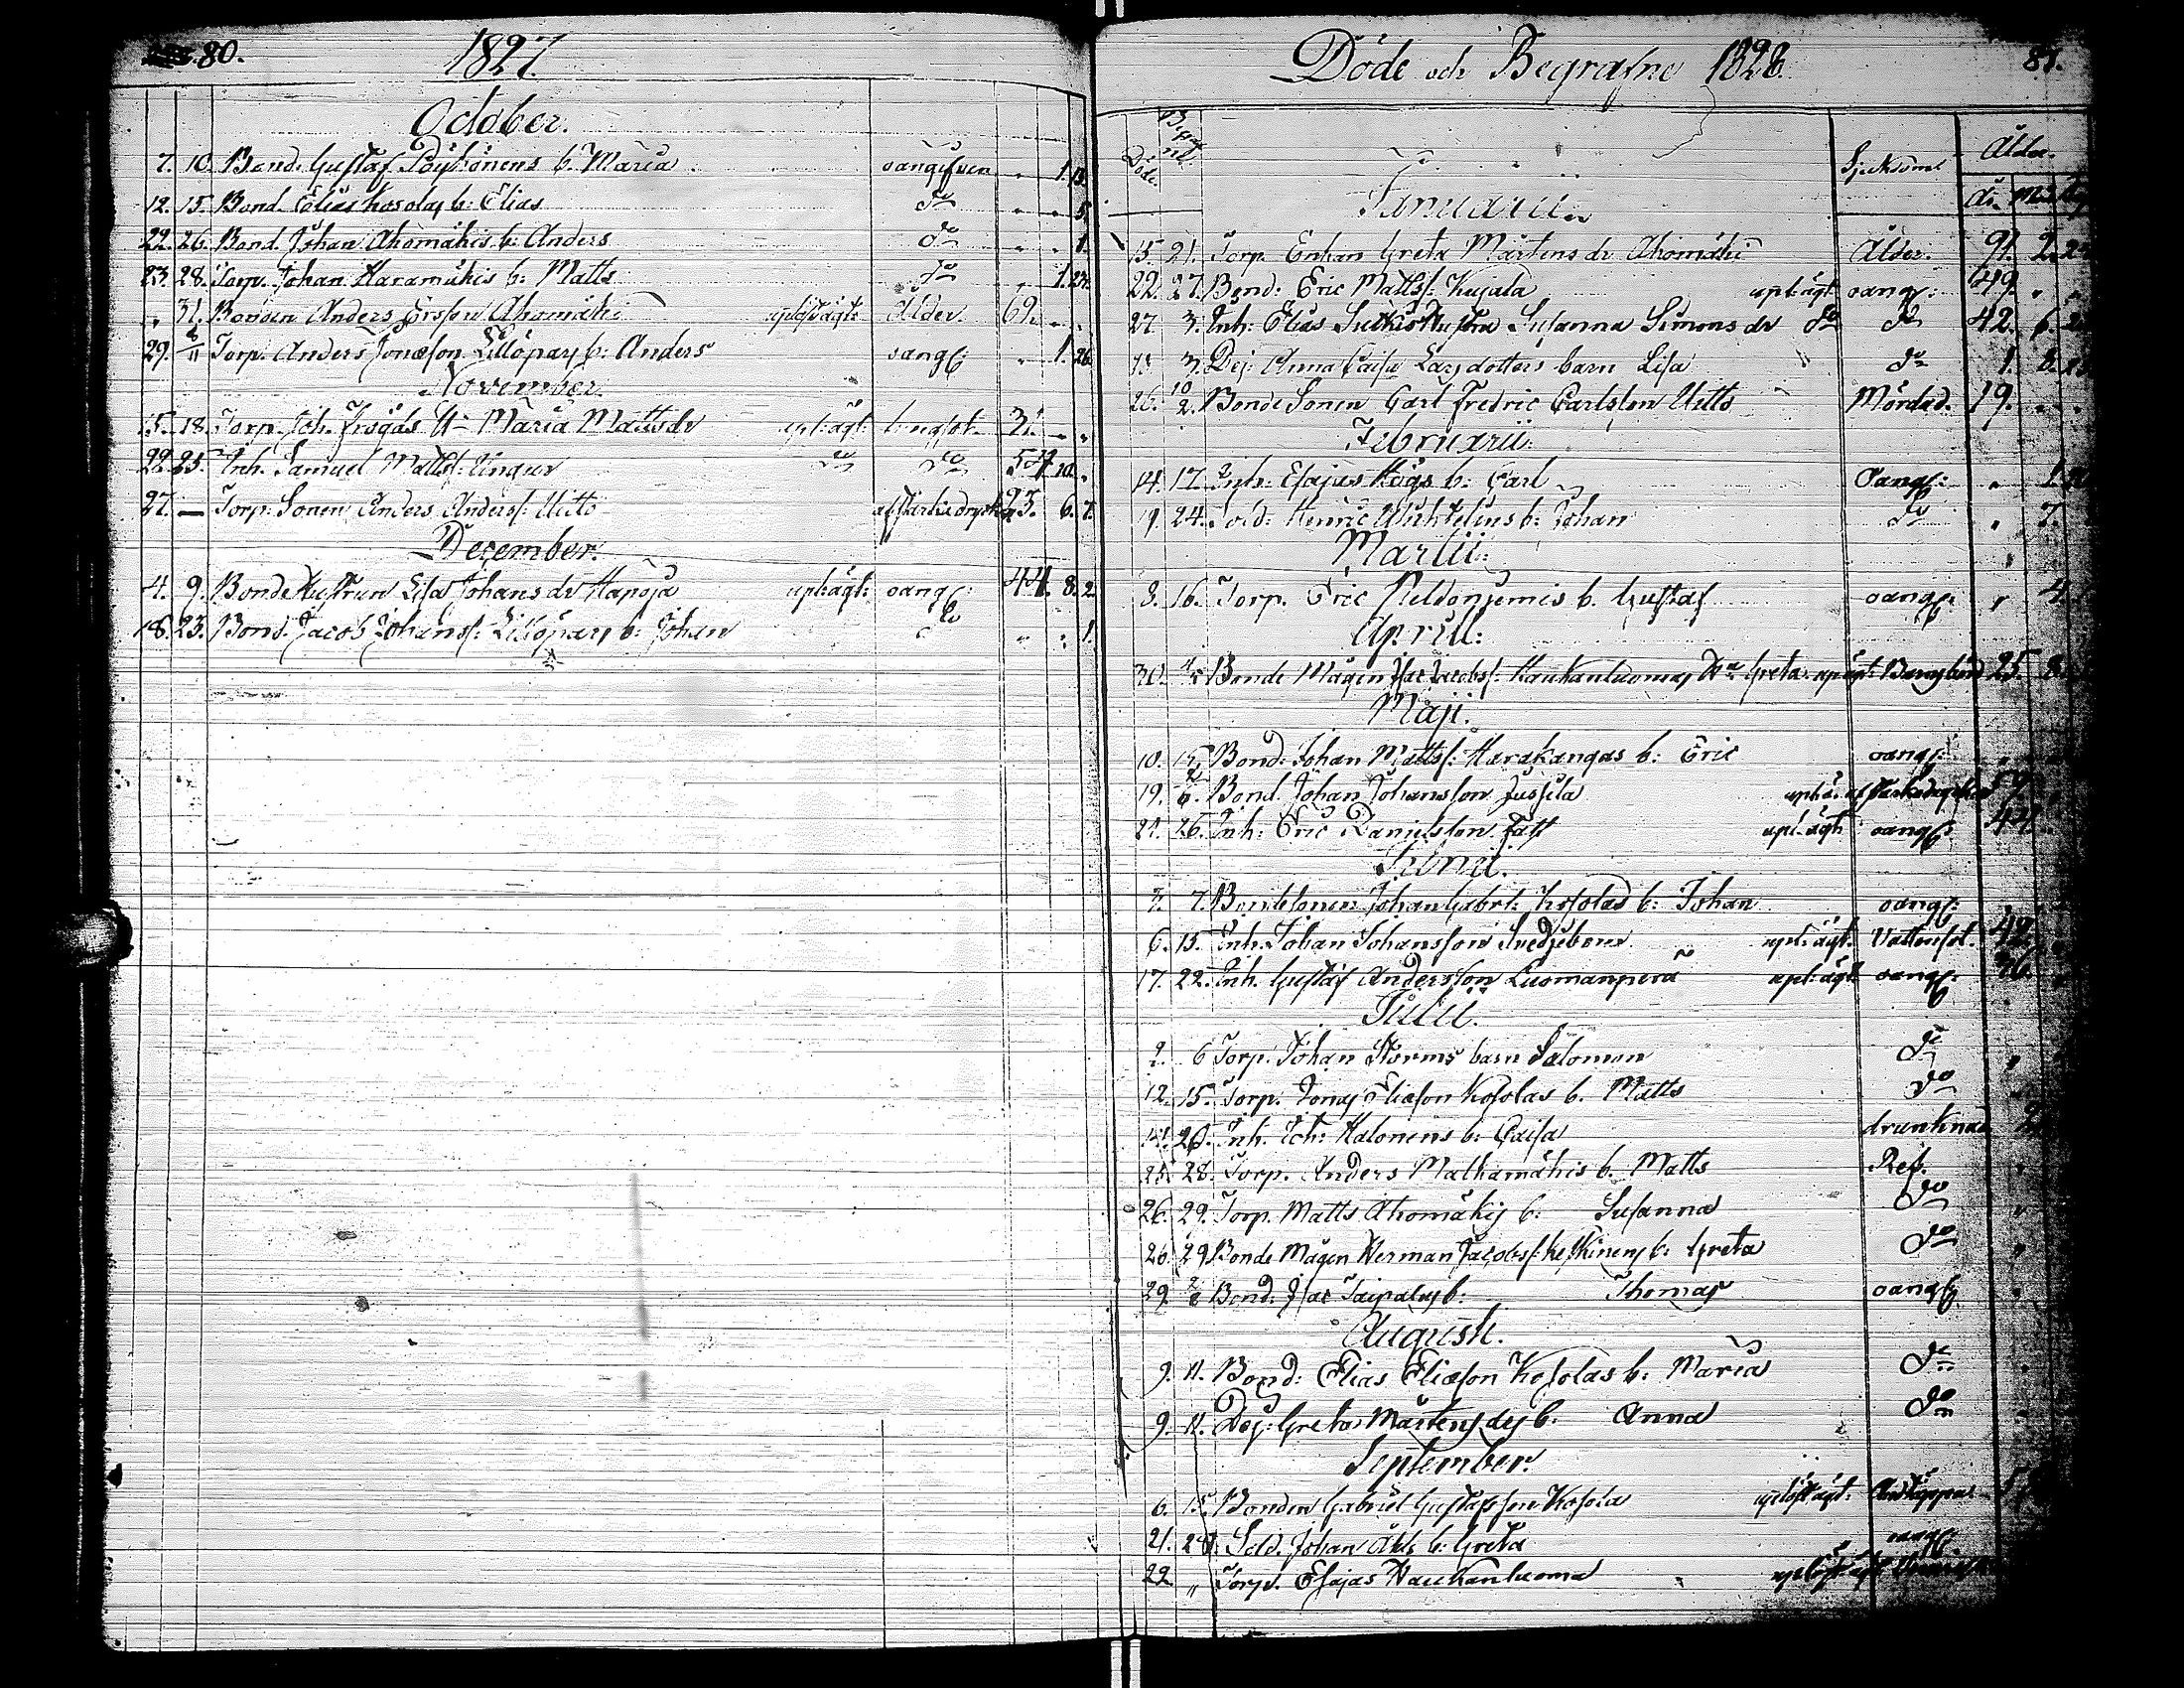 80.
1827.
October.
7. 10. Bond. Gustaf Pöyhönens b. Maria oangifven " 1. 13.
12. 15. Bond. Elias Kosolas b: Elias do " " 5.
22. 26. Bond. Johan Ahomäkis b: Anders do " " 1.
23. 28. Torp. Johan Haramäkis b: Matts do " 1. 23.
" 31. Bonden Anders Ersson Ahomäki ålder 69. " "
29. 4/11 Torp. Anders Jonæson Lillöpary b: Anders oangf: " 1. 26.
November.
15. 18. Torp. Joh. Maria Mattsdr upl: ägt: lungsot 31. " "
22. 25. Inh. Samuel Matts: Ungur do do 54. 10. "
27. — Torp. Sonen Anders Anders: Uitto af starka drycker 23. 6. 7.
December.
4. 9. Bonde Hustrun Lisa Johansdr Hapoja upl: ägt: oangf: 44. 8. 2.
18. 23. Bond. Jacob Johans: b: Johan do " " 1.
Döde och Begrafne 1828. 81.
Döde. Begraf:ne
Sjukdom Ålder.
År. Mån. Dag.
Januarii.
15. 21. Torp. Enkan Greta Mårtens dr Ahomäki Ålder. 91. 2.
22. 27. Bond: Eric Matts: Kujala upl: ägt oangf: 49. " "
27. 3. Inh: Elias Hustru Susanna Simons dr do do 42. 6.
3. Dej: Anna Caisa Larsdotters barn Lisa do 1. 8.
26. 10/2. Bonde Sonen Carl Fredric Carlsson Uitto Mördad. 19. " "
Februarii.
14. 17. Inh: Esajas Högs b: Carl Oangf: " 1.
19. 24. Sold: Henric b: Johan do " 7.
Martii:
8. 16. Torp. Eric b. Gustaf oangf: " 4.
April:
30. Bonde Mågen Isac Jacobs: Kaukanluomas Hu Greta upl: ägt: Barnsbörd 25. 8.
Maji.
10. 15. Bond: Johan Matts: Harakangas b: Eric oangf:
19. 2/6. Bond. Johan Johansson Jussila af starka drycker 59
21. 26. Inh: Eric Danielsson Fält upl: ägt oangf: 44
Junii.
7. Bondesonen Johan Gabr: Kosolas b: Johan oangf:
6. 15. Inh. Johan Johansson upl: ägt: Vattensot. 42.
17. 22. Inh. Gustaf Andersson Luomanperä upl: ägt oangf: 76.
Julii.
2. 6 Torp. Johan Storms barn Salomon do "
12. 15. Torp. Jonas Eliæson Kosolas b. Matts do
20. Inh. Joh: Halonens b: Caisa drunknad
25. 28. Torp. Anders Malkamäkis b. Matts Ref.
26. 29. Torp. Matts Ahomäkis b: Susanna do "
26. 29 Bonde Mågen Herman Jacobs: Keskinens b: Greta do "
29. 2/8 Bond: Isac Taipalus b: Thomas oangf: "
Augusti.
9. 11. Bond: Elias Eliæson Kosolas b: Maria do
9. 11. Dej: Greta Mårtens des b: Anna do
September.
6. 15. Bonden Gabriel Gustafsson Kosola
21. 28. Sold. Johan Åhls b: Greta oangf:
22 " Torp. Esajas Haukanluoma